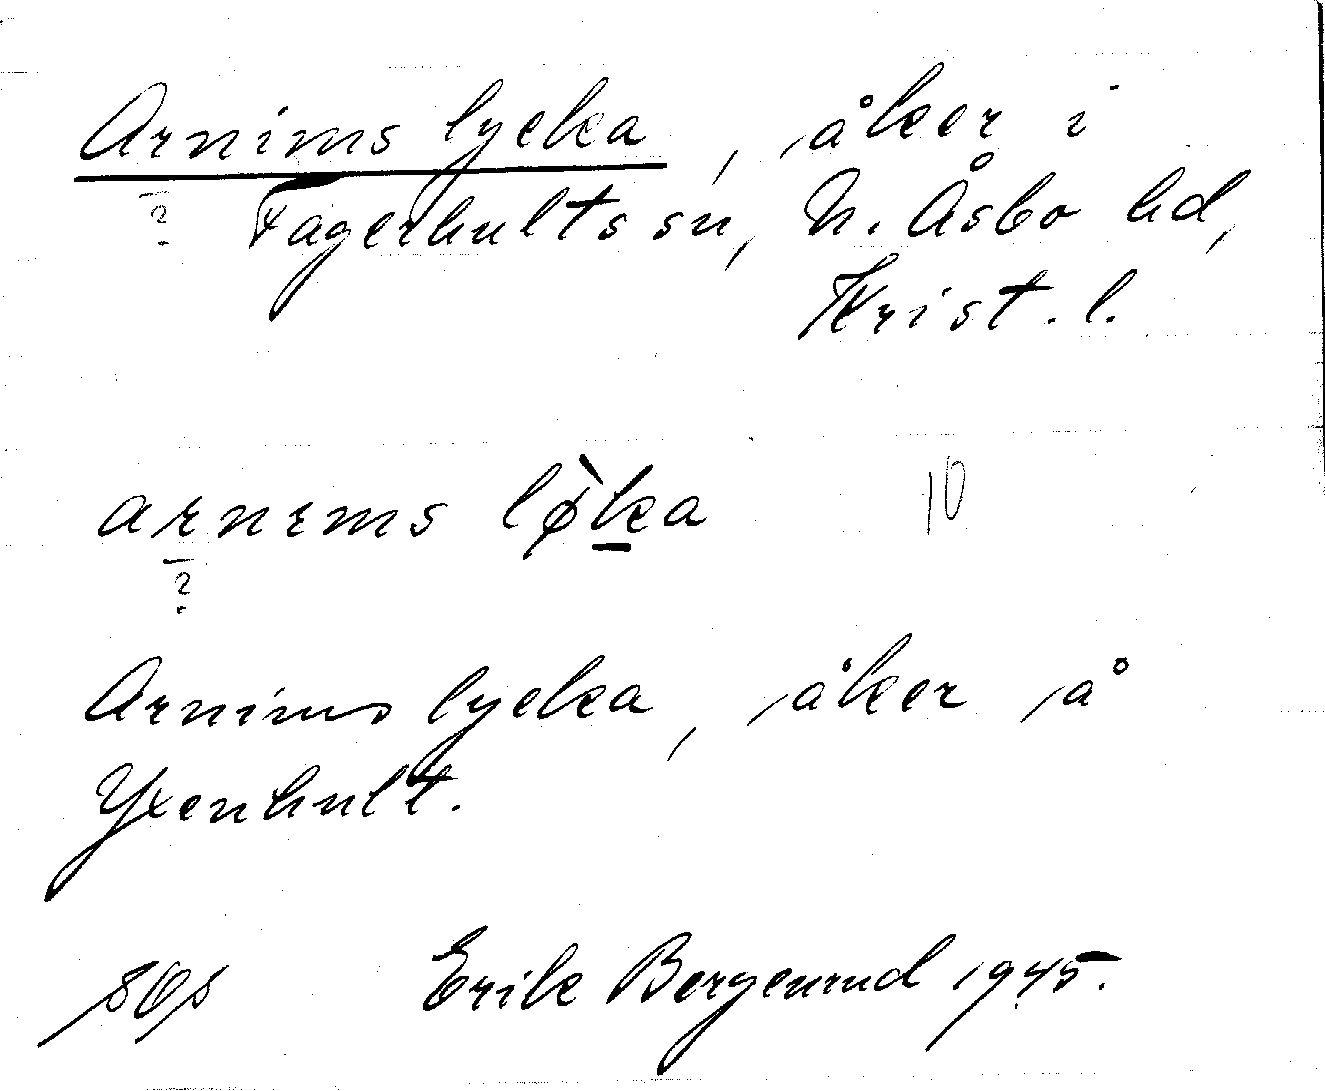 Arnims lycka, åker i
? Fagerhults sn, N. Åsbo hd,
Krist. l.
arnıms lø̀ka 10
?
Arnims lycka, åker på
Yxenhult.
Erik Bergenrud 1945.